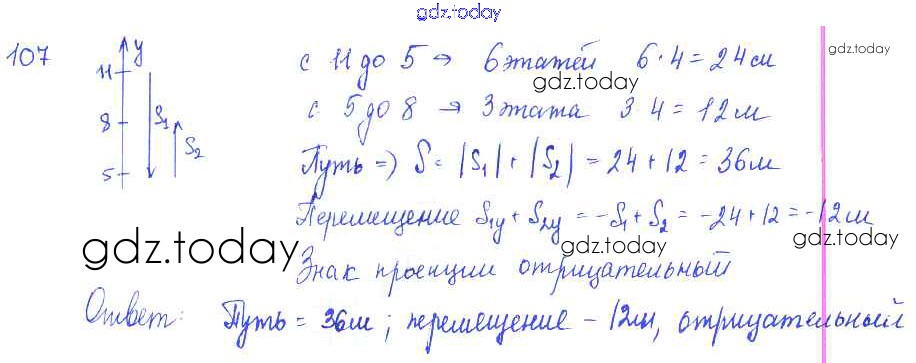 gdz.today
107
y
11
8
5
S₁
S₂
с 11 до 5 → 6 этажей 6·4 = 24 м
gdz.today
gdz.today
с 5 до 8 → 3 этажа 3 4 = 12 м
Путь ⇒ S = |S₁| + |S₂| = 24 + 12 = 36 м
Перемещение S₁y + S₂y = -S₁ + S₂ = -24 + 12 = -12 м
gdz.today
gdz.today
gdz.today
Знак проекции отрицательный
Ответ: Путь = 36 м; перемещение - 12 м, отрицательный